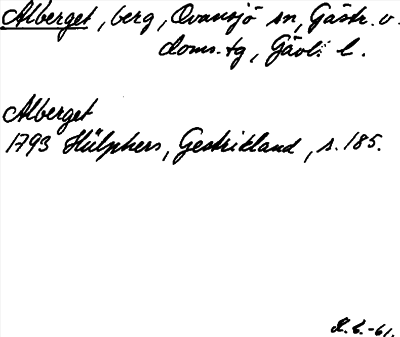 Alberget, berg, Ovansjö sn, Gästr. v.
doms.tg, Gävl. l.
Alberget
1793 Hülphers, Gestrikland, s. 185.